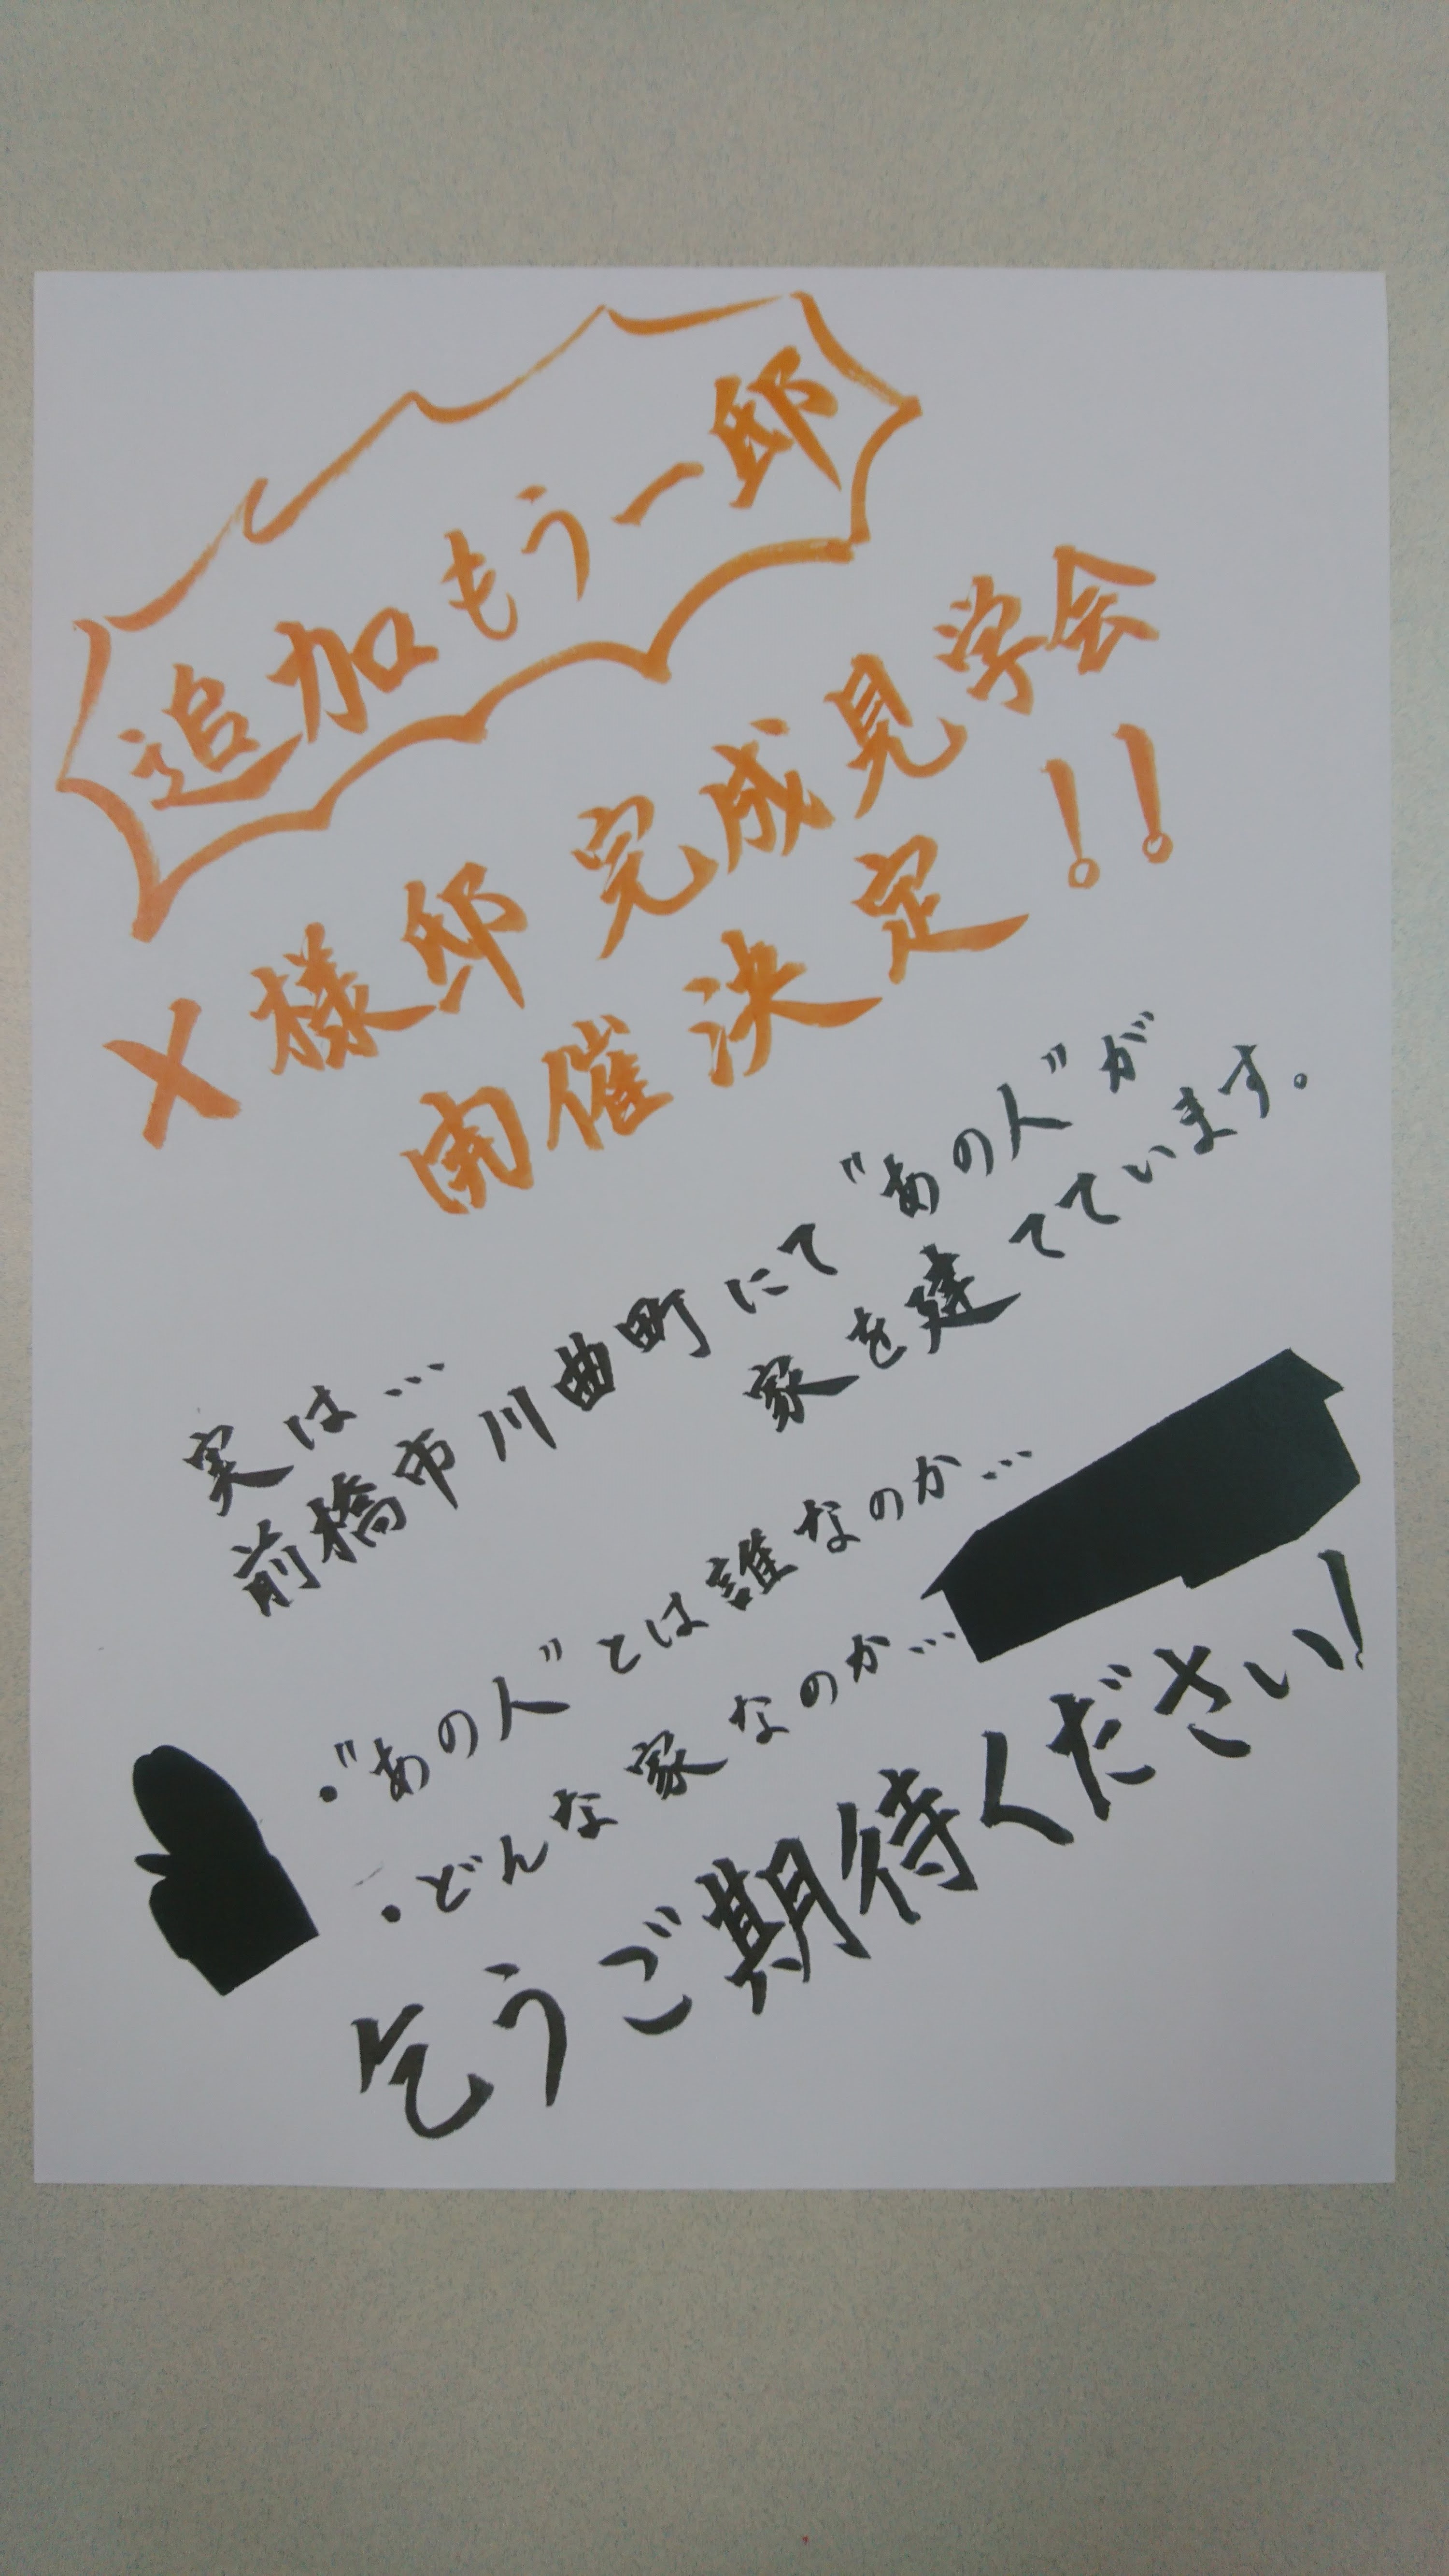 追加もう一邸
X様邸 完成見学会
開催決定!!
実は…
前橋市川曲町にて"あの人"が
家を建てています。
・"あの人"とは誰なのか…
・どんな家なのか…
乞うご期待ください!